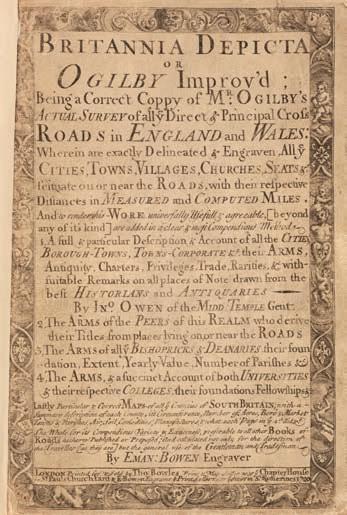 BRITANNIA DEPICTA
OR
OGILBY Improv'd;
Being a Correct Coppy of Mr. OGILBY's
ACTUAL SURVEY of all ye Direct & Principal Cross
ROADS in ENGLAND and WALES:
Wherein are exactly Delineated & Engraven, All ye
CITIES, TOWNS, VILLAGES, CHURCHES, SEATS &
scituate on or near the ROADS, with their respective
Distances in MEASURED and COMPUTED MILES.
And to render this WORK universally Usefull & agreeable, [beyond
any of its kind] are added in a clear & most Compendious Method
1. A full & particular Description & Account of all the CITIES,
BOROUGH-TOWNS, TOWNS-CORPORATE &c their ARMS,
Antiquity, Charters, Privileges, Trade, Rarities, &c with
suitable Remarks on all places of Note drawn from the
best HISTORIANS and ANTIQUARIES
By Jno. OWEN of the MIDD. TEMPLE Gent.
2. The ARMS of the PEERS of this REALM who derive
their Titles from places lying on or near the ROADS
3. The ARMS of all ye BISHOPRICKS & DEANARIES their foun
dation, Extent, Yearly Value, Number of Parishes &c
4. The ARMS, & a succinct Account of both UNIVERSITIES
& their respective COLLEGES, their foundations Fellowships
Lastly Particular & Correct MAPS of all ye Counties of SOUTH BRITAIN; with a
Summary Description of each County, its Circumference, Number of Acres, Boro' & Market
Towns & Parishes, Air, Soil, Commodities, Manufactures,
The Whole for its Compendious Variety & Exactness, preferable to all other Books of
Roads hitherto Published or Proposed; And calculated not only for the direction of
the Traveller (as they are) but the general use of the Gentleman and Tradesman.
By EMAN: BOWEN Engraver
LONDON Printed for & Sold by Tho: Bowles Print & Map Seller next ye Chapter House
in St. Pauls Church Yard & Em: Bowen Engraver & Print Seller near ye Stairs in St. Katherines 1720